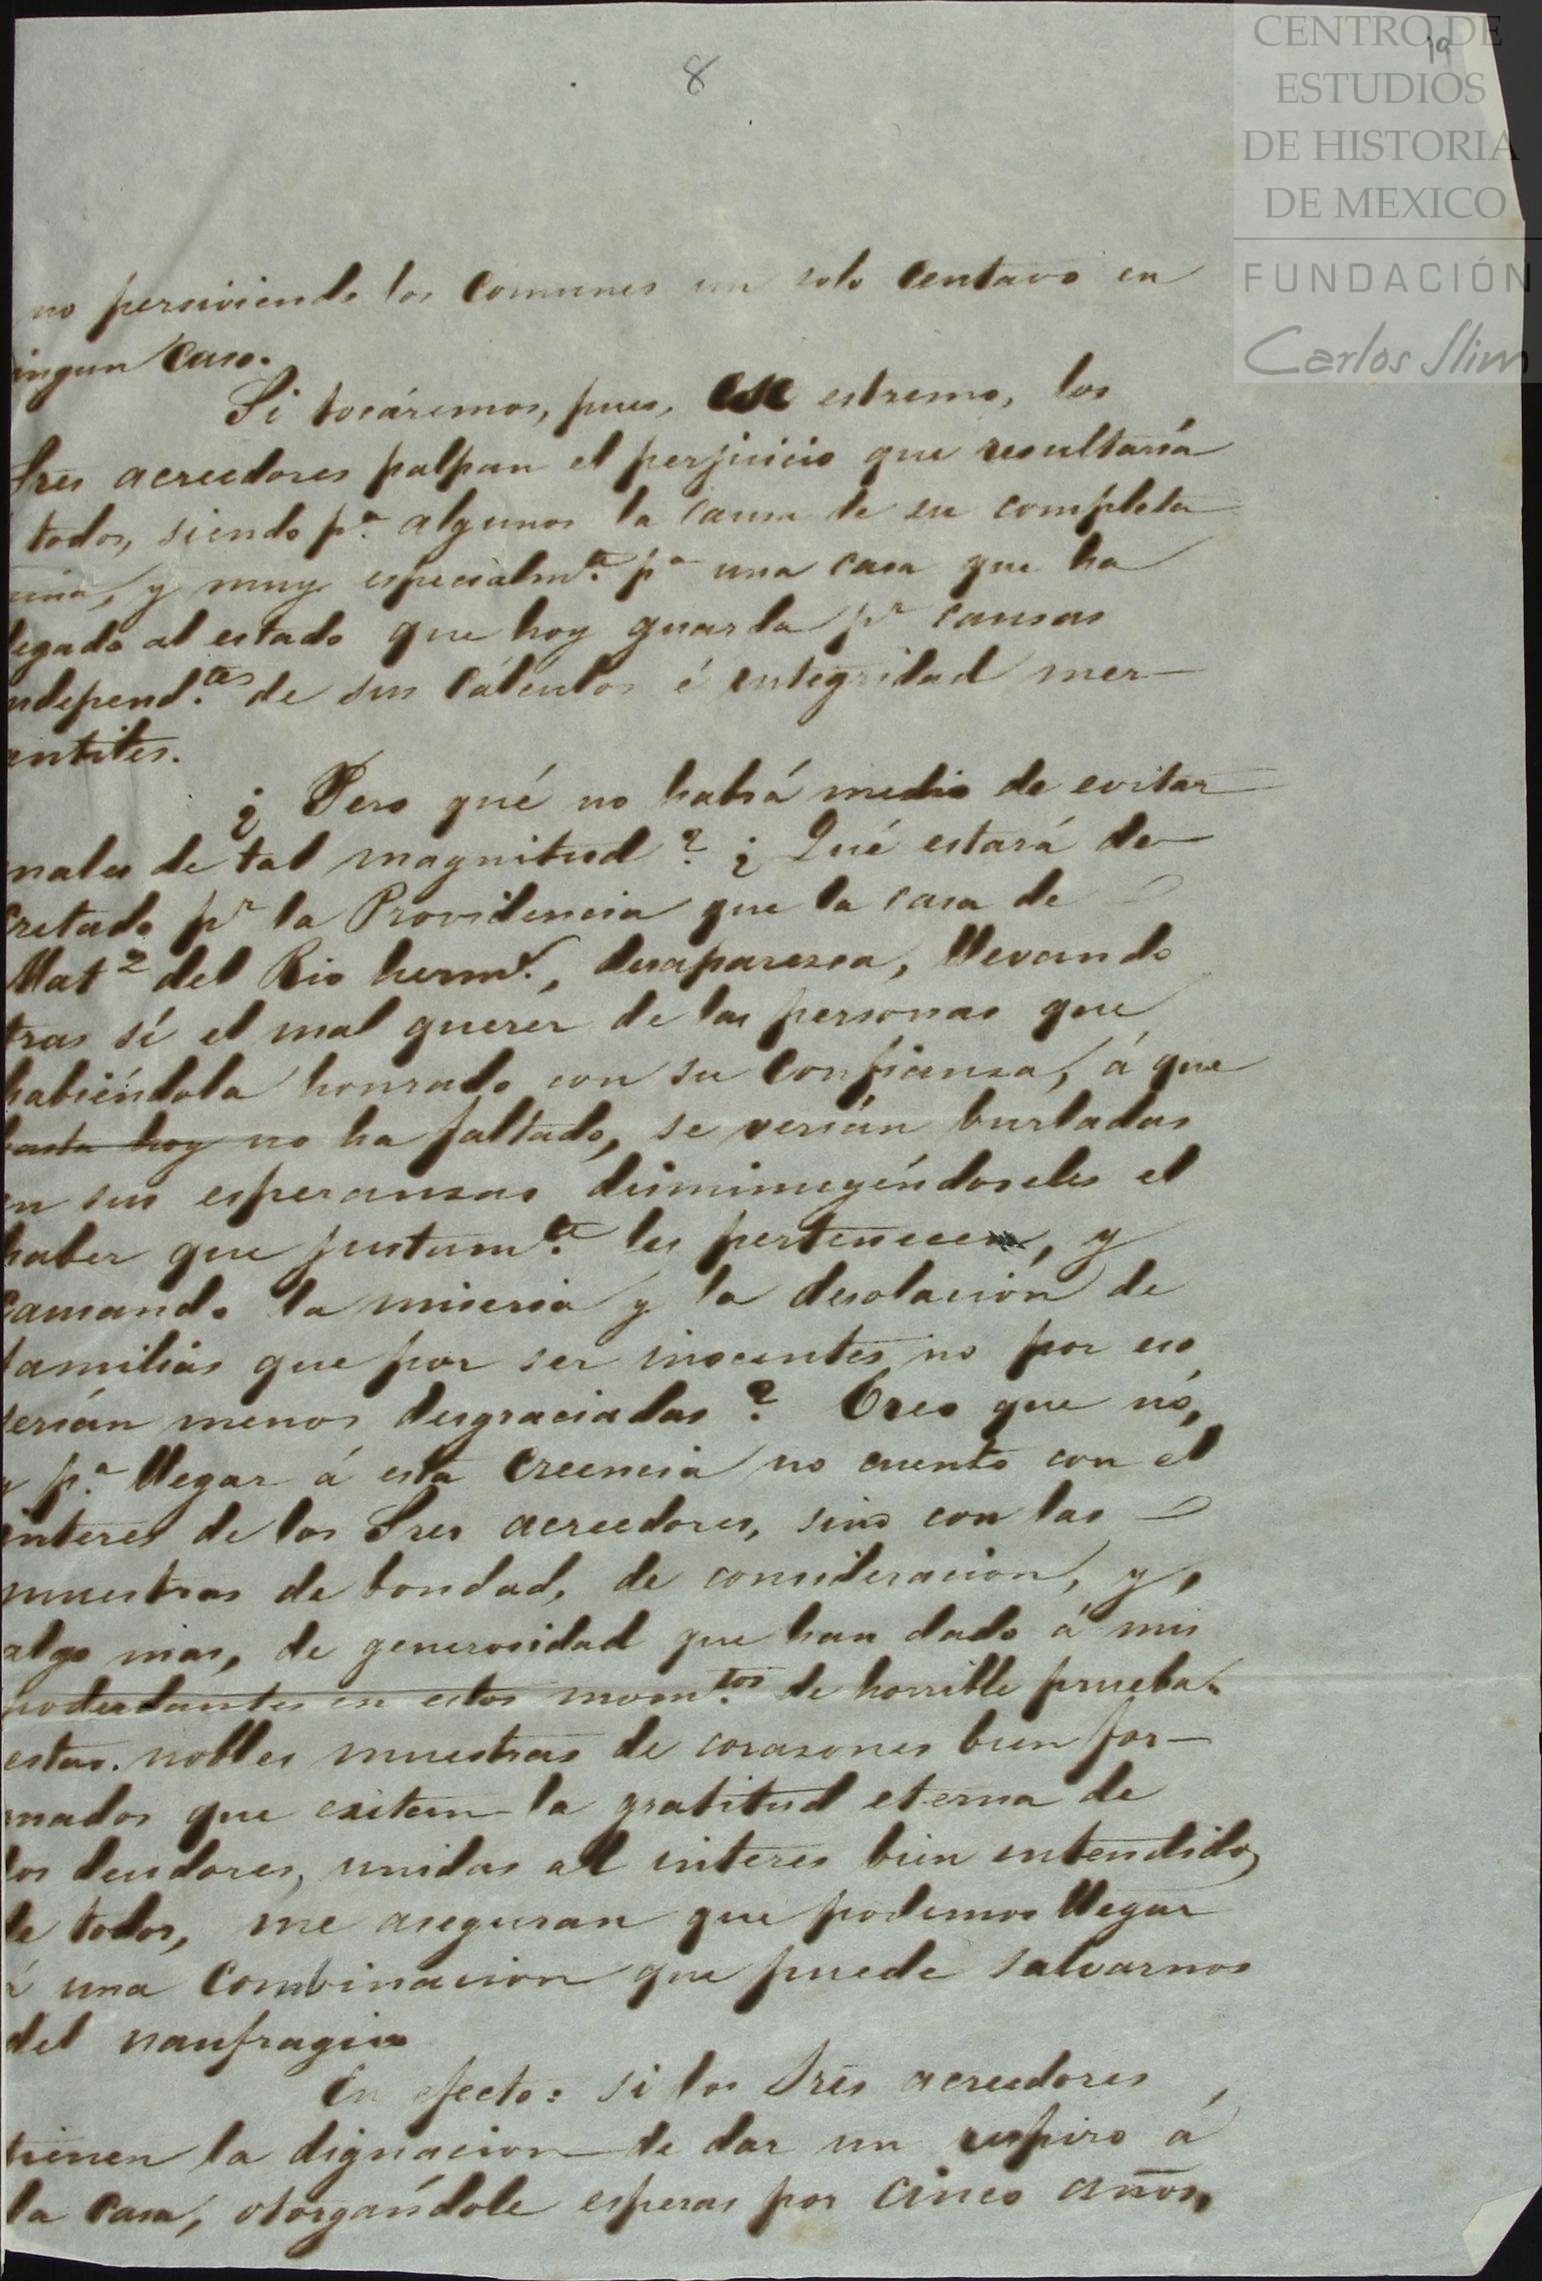 8
19
CENTRO DE
ESTUDIOS
DE HISTORIA
DE MEXICO
FUNDACIÓN
Carlos Slim
no persiviendo los comunes un solo centavo en
ingun caso.
Si tocáremos, pues, ese estremo, los
Sres acreedores palpan el perjuicio que resultaría
todos, siendo pª. algunos la causa de su completa
uina, y muy especialmte. pª una casa que ha
legado al estado que hoy guarda pr causas
ndepend.tes de sus cálculos é integridad mer-
antiles.
¿Pero qué no habrá medio de evitar
males de tal magnitud? ¿Qué estará de-
cretado pr la Providencia que la casa de
Matz del Rio herms., desaparezca, llevando
tras sí el mal querer de las personas que
habiéndola honrado con su confianza, á que
hasta hoy no ha faltado, se verían burladas
en sus esperanzas disminuyéndoseles el
haber que justamte. les pertenece, y
causando la miseria y la desolación de
familias que por ser inocentes no por eso
serían menos desgraciadas? Creo que nó,
y pª. llegar á esta creencia no cuento con el
interes de los Sres acreedores, sino con las
muestras de bondad, de consideracion, y,
algo mas, de generosidad que han dado á mis
poderdantes en estos momtos. de horrible prueba.
estas nobles muestras de corazones bien for-
mados que exitan la gratitud eterna de
los deudores, unidas al interes bien entendido
de todos, me aseguran que podemos llegar
á una combinacion que puede salvarnos
del naufragio
En efecto: si los Sres acreedores
tienen la dignacion de dar un respiro á
la casa, otorgándole esperas por cinco años,